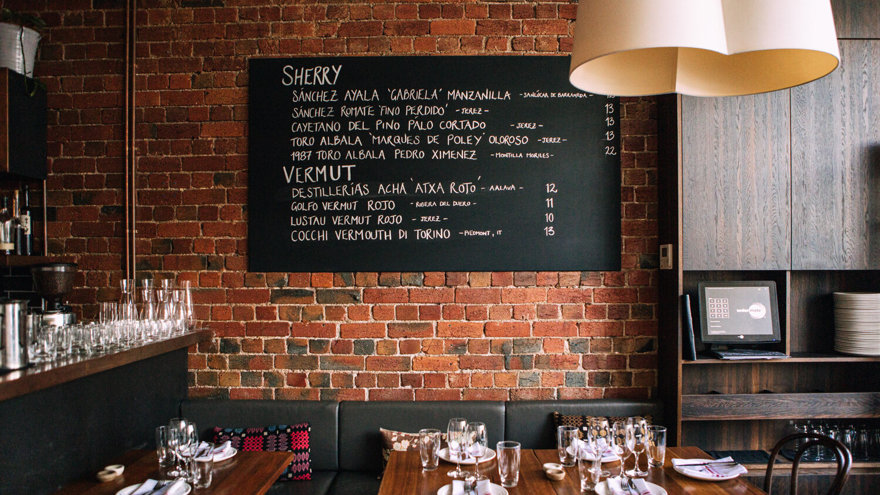 SHERRY
SÁNCHEZ AYALA 'GABRIELA' MANZANILLA -SANLÚCAR DE BARRAMEDA-
SÁNCHEZ ROMATE 'FINO PERDIDO' -JEREZ- 13
CAYETANO DEL PINO PALO CORTADO -JEREZ- 13
TORO ALBALA 'MARQUES DE POLEY' OLOROSO -JEREZ- 13
1987 TORO ALBALA PEDRO XIMENEZ -MONTILLA MORILES- 22
VERMUT
DESTILLERÍAS ACHA 'ATXA ROJO' -AALAVA- 12
GOLFO VERMUT ROJO -RIBERA DEL DUERO- 11
LUSTAU VERMUT ROJO -JEREZ- 10
COCCHI VERMOUTH DI TORINO -PIEDMONT, IT 13